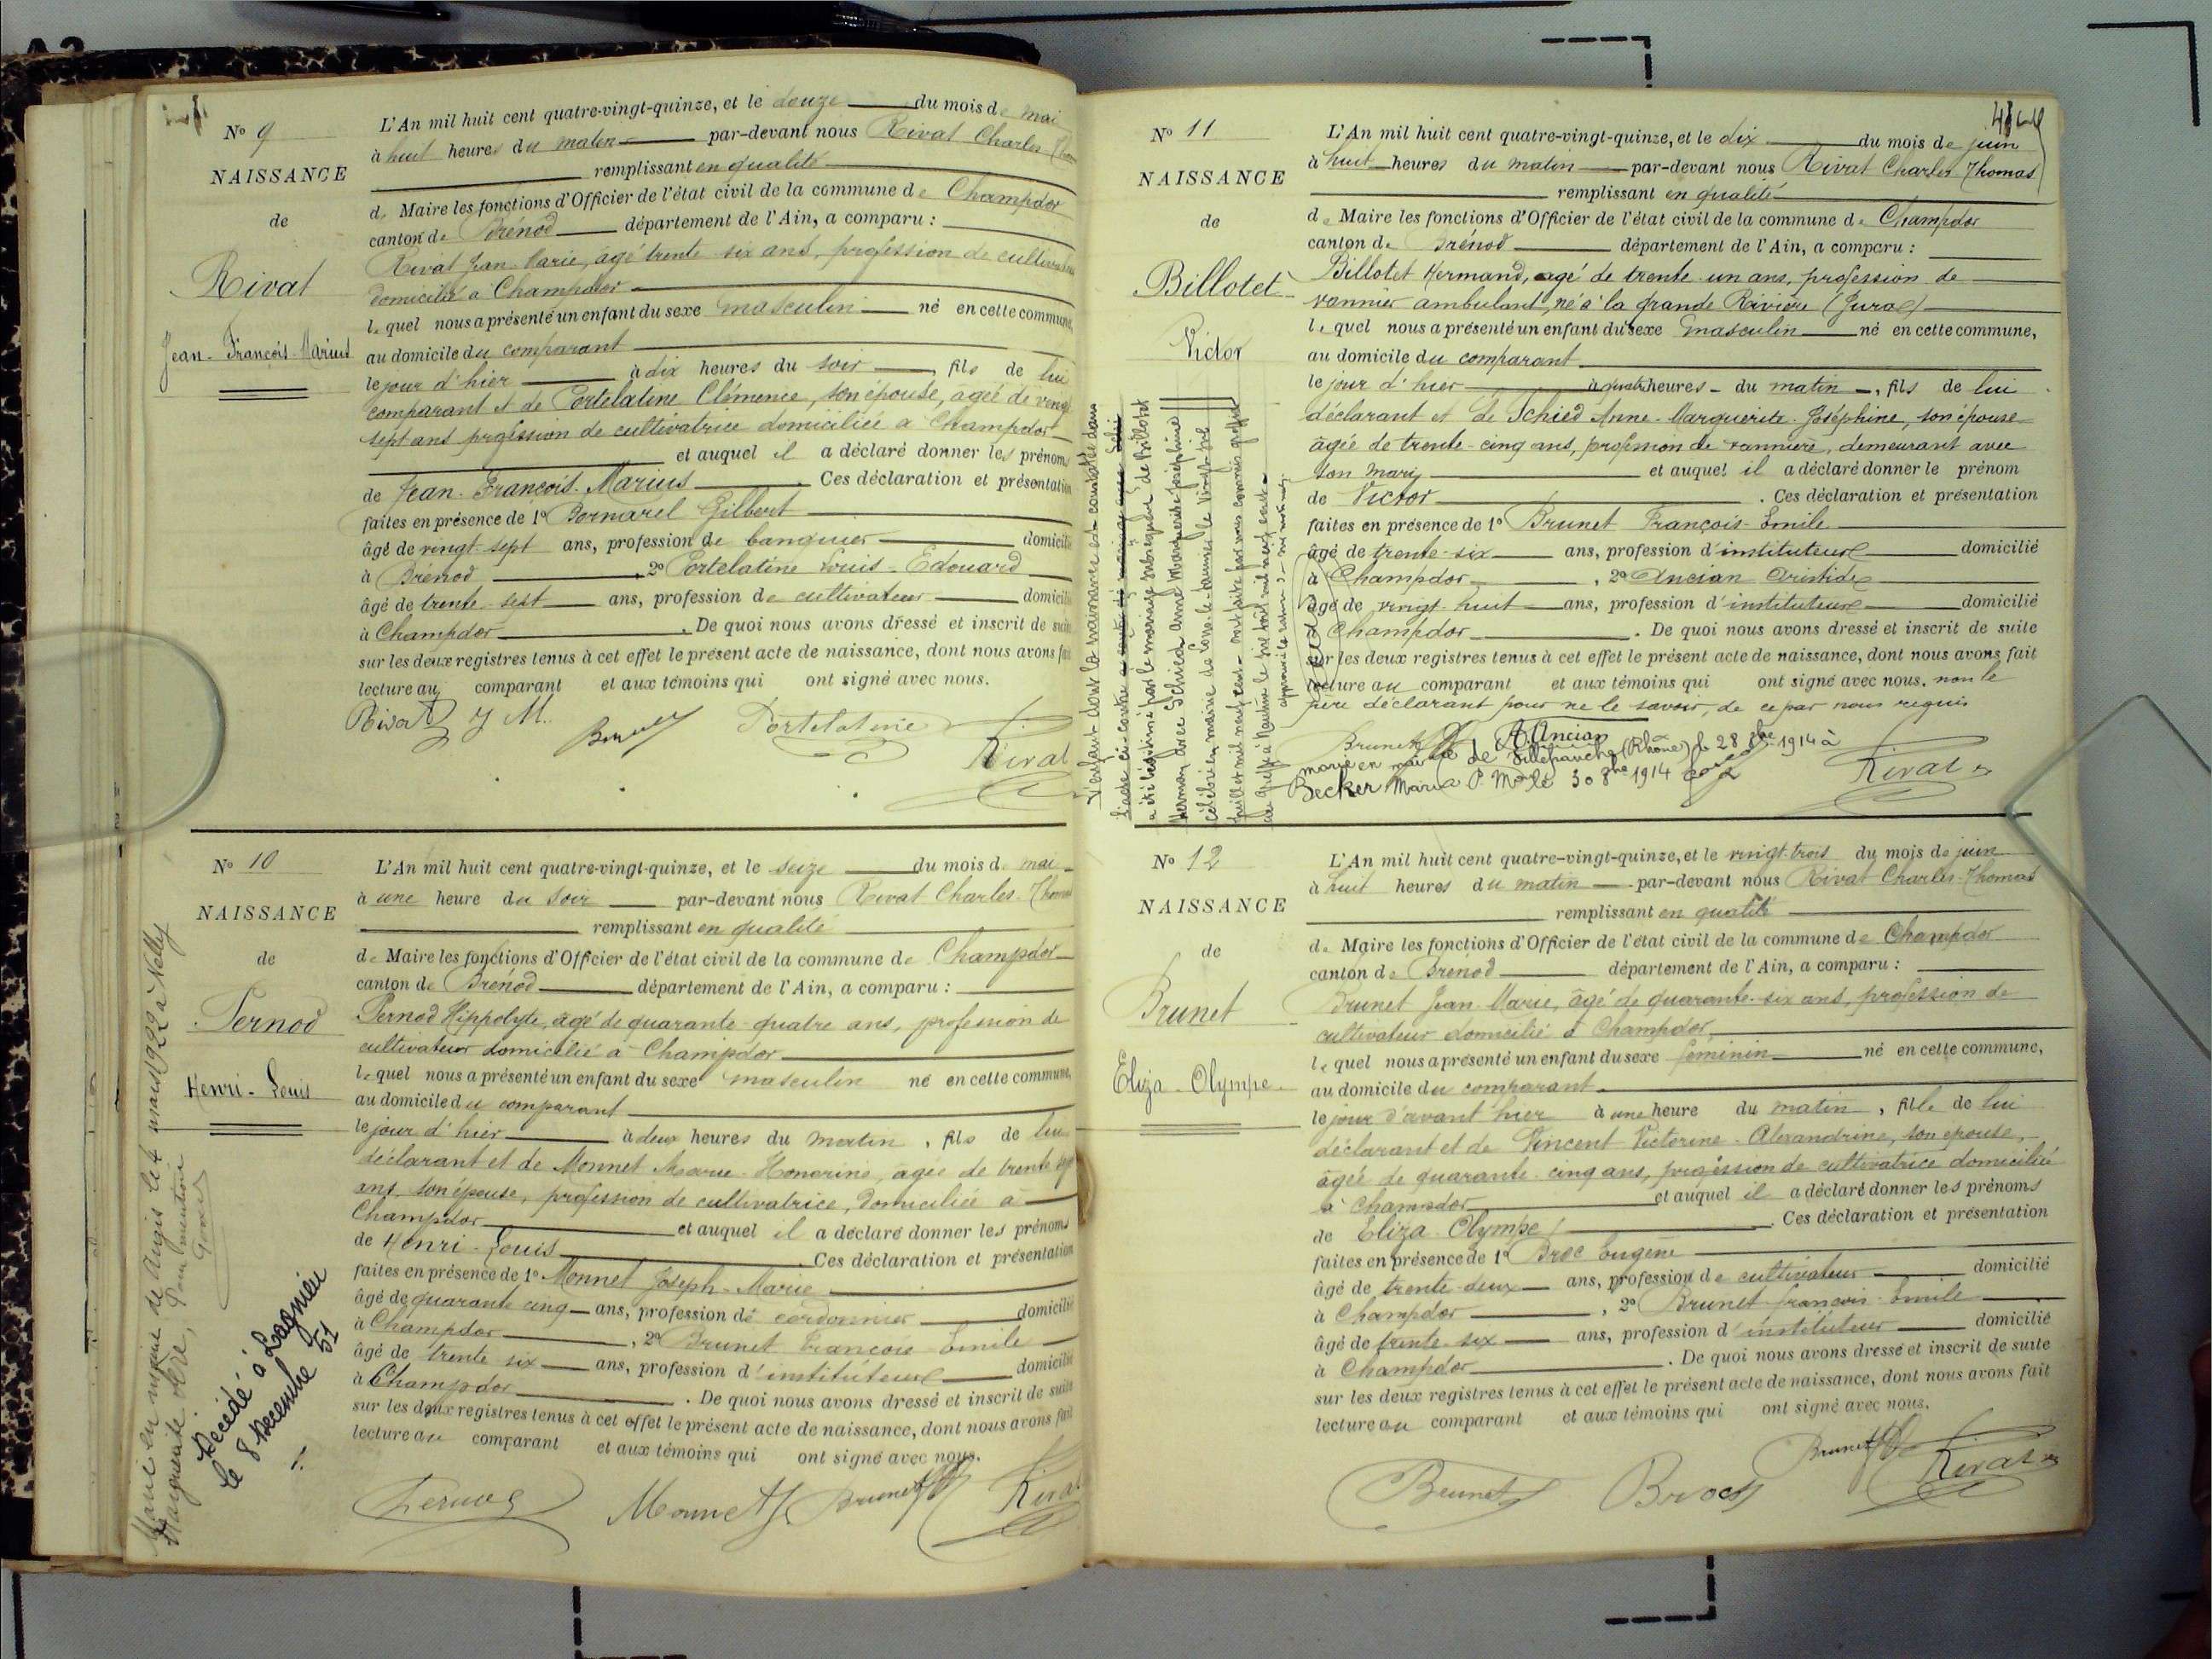 N° 9
NAISSANCE
de
Rivat
Jean-François-Marius
L'An mil huit cent quatre-vingt-quinze, et le douze du mois de mai
à huit heures du matin par-devant nous Rivat Charles
remplissant en qualité
de Maire les fonctions d'Officier de l'état civil de la commune de Champdor
canton de Brénod département de l'Ain, a comparu :
Rivat Jean-Marie, âgé trente six ans, profession de cultivateur
domicilié à Champdor
lequel nous a présenté un enfant du sexe masculin né en cette commune,
au domicile du comparant
le jour d'hier à dix heures du soir, fils de lui
comparant et de Portelatine Clémence, son épouse, âgée de vingt
sept ans profession de cultivatrice domiciliée à Champdor
et auquel il a déclaré donner les prénoms
de Jean-François-Marius. Ces déclaration et présentation
faites en présence de 1° Bornarel Gilbert
âgé de vingt-sept ans, profession de banquier domicilié
à Brénod, 2° Portelatine Louis-Edouard
âgé de trente-sept ans, profession de cultivateur domicilié
à Champdor. De quoi nous avons dressé et inscrit de suite
sur les deux registres tenus à cet effet le présent acte de naissance, dont nous avons fait
lecture au comparant et aux témoins qui ont signé avec nous.
Rivat J M. Portelatine
Rivat
N° 10
NAISSANCE
de
Pernod
Henri-Louis
L'An mil huit cent quatre-vingt-quinze, et le seize du mois de mai
à une heure du soir par-devant nous Rivat Charles-Thomas
remplissant en qualité
de Maire les fonctions d'Officier de l'état civil de la commune de Champdor
canton de Brénod département de l'Ain, a comparu :
Pernod Hippolyte, âgé de quarante-quatre ans, profession de
cultivateur domicilié à Champdor
lequel nous a présenté un enfant du sexe masculin né en cette commune,
au domicile du comparant
le jour d'hier à deux heures du matin, fils de lui
déclarant et de Monnet Marie-Honorine, âgée de trente sept
ans, son épouse, profession de cultivatrice, domiciliée à
Champdor et auquel il a déclaré donner les prénoms
de Henri-Louis. Ces déclaration et présentation
faites en présence de 1° Monnet Joseph-Marie
âgé de quarante cinq ans, profession de cordonnier domicilié
à Champdor, 2° Brunet François Emile
âgé de trente six ans, profession d'instituteur domicilié
à Champdor. De quoi nous avons dressé et inscrit de suite
sur les deux registres tenus à cet effet le présent acte de naissance, dont nous avons fait
lecture au comparant et aux témoins qui ont signé avec nous.
Pernod Monnet Brunet Rivat
Marié en mairie de le 4 mars 1922 à Nelly
Marguerite
Pour mention
Décédé à Lagnieu
le 8 Décembre 51
N° 11
NAISSANCE
de
Billotet
Victor
L'An mil huit cent quatre-vingt-quinze, et le dix du mois de juin
à huit heures du matin par-devant nous Rivat Charles Thomas
remplissant en qualité
de Maire les fonctions d'Officier de l'état civil de la commune de Champdor
canton de Brénod département de l'Ain, a comparu :
Billotet Hermand, âgé de trente-un ans, profession de
vannier ambulant, né à la grande Rivière (Jura)
lequel nous a présenté un enfant du sexe masculin né en cette commune,
au domicile du comparant
le jour d'hier à quatre heures du matin, fils de lui
déclarant et de Schied Anne-Marguerite-Joséphine, son épouse
âgée de trente-cinq ans, profession de vannière, demeurant avec
son mary et auquel il a déclaré donner le prénom
de Victor. Ces déclaration et présentation
faites en présence de 1° Brunet François-Emile
âgé de trente-six ans, profession d'instituteur domicilié
à Champdor, 2° Ancian Aristide
âgé de vingt-huit ans, profession d'instituteur domicilié
à Champdor. De quoi nous avons dressé et inscrit de suite
sur les deux registres tenus à cet effet le présent acte de naissance, dont nous avons fait
lecture au comparant et aux témoins qui ont signé avec nous. non le
père déclarant pour ne le savoir, de ce par nous requis
Brunet A. Ancian
marié en mairie de Villefranche (Rhône) le 28 8bre 1914 à
Becker Maria P. Mon le 30 8bre 1914
Rivat
L'enfant dont la naissance est constatée dans
l'acte ci-contre
a été légitimé par le mariage subséquent de Billotet
Herman avec Schied Anne Marguerite Joséphine
N° 12
NAISSANCE
de
Brunet
Eliza-Olympe
L'An mil huit cent quatre-vingt-quinze, et le vingt-trois du mois de juin
à huit heures du matin par-devant nous Rivat Charles-Thomas
remplissant en qualité
de Maire les fonctions d'Officier de l'état civil de la commune de Champdor
canton de Brénod département de l'Ain, a comparu :
Brunet Jean-Marie, âgé de quarante-six ans, profession de
cultivateur domicilié à Champdor,
lequel nous a présenté un enfant du sexe féminin né en cette commune,
au domicile du comparant
le jour d'avant hier à une heure du matin, fille de lui
déclarant et de Vincent Victorine-Alexandrine, son épouse,
âgée de quarante-cinq ans, profession de cultivatrice domiciliée
à Champdor et auquel il a déclaré donner les prénoms
de Eliza Olympe. Ces déclaration et présentation
faites en présence de 1° Broc Eugène
âgé de trente-deux ans, profession de cultivateur domicilié
à Champdor, 2° Brunet François-Emile
âgé de trente-six ans, profession d'instituteur domicilié
à Champdor. De quoi nous avons dressé et inscrit de suite
sur les deux registres tenus à cet effet le présent acte de naissance, dont nous avons fait
lecture au comparant et aux témoins qui ont signé avec nous.
Brunet Broc Brunet Rivat